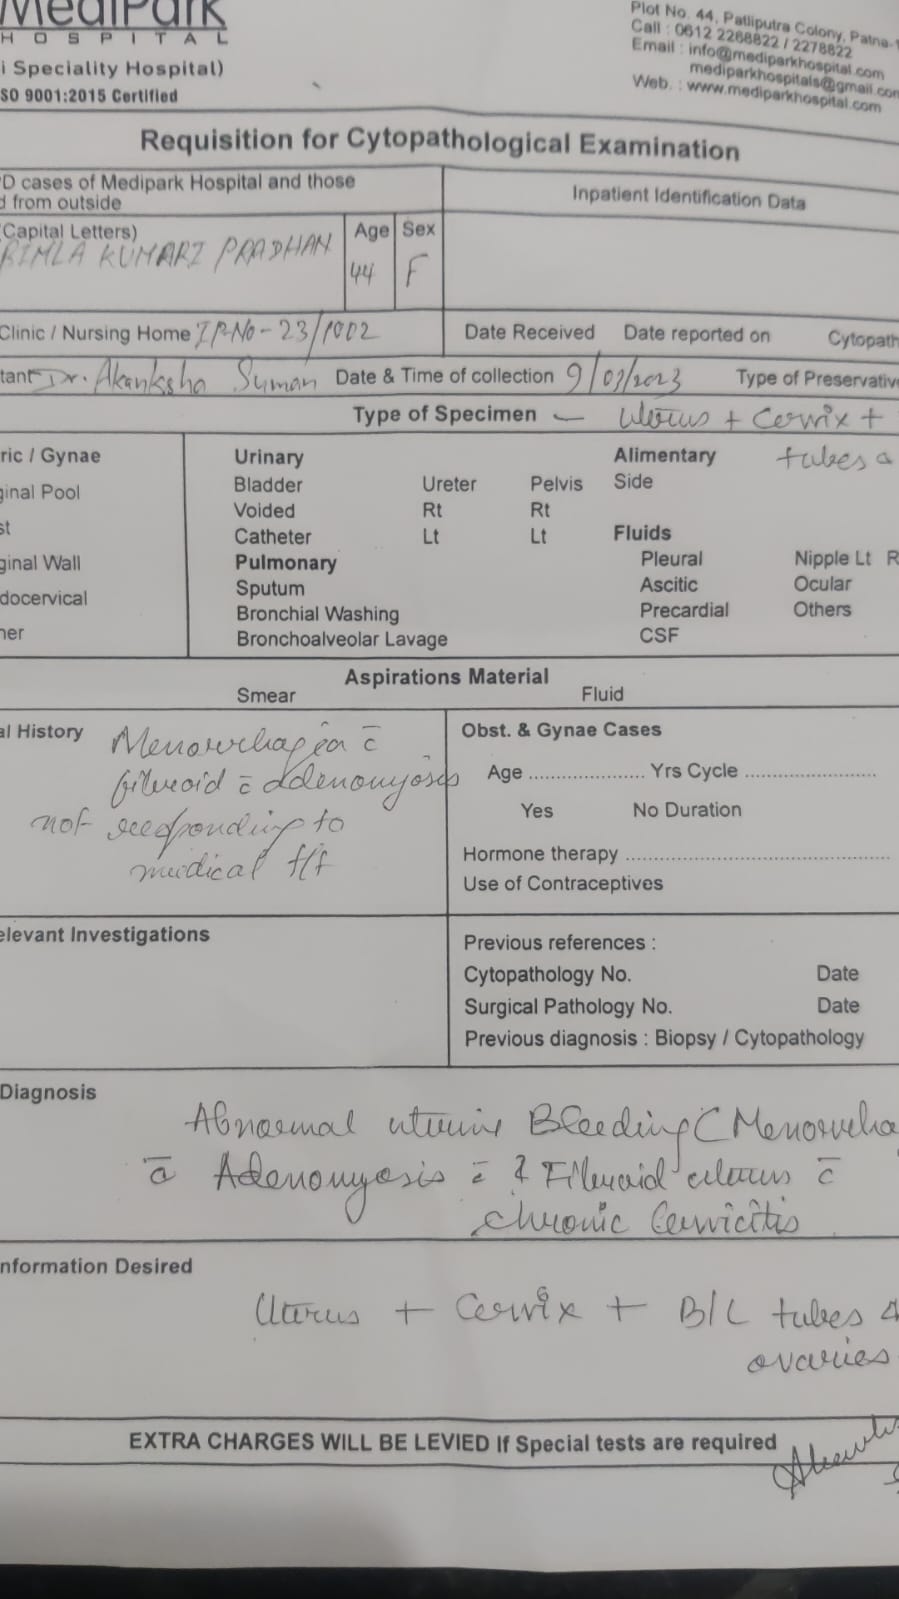 MediPark
HOSPITAL
i Speciality Hospital)
SO 9001:2015 Certified
Plot No. 44, Patliputra Colony, Patna-1
Call : 0612 2268822 / 2278822
Email : info@mediparkhospital.com
mediparkhospitals@gmail.com
Web. : www.mediparkhospital.com
Requisition for Cytopathological Examination
D cases of Medipark Hospital and those
d from outside
Inpatient Identification Data
Capital Letters) Age Sex
BIMLA KUMARI PRADHAN 44 F
Clinic / Nursing Home IPNo - 23/1002 Date Received Date reported on Cytopath
tant Dr. Akanksha Suman Date & Time of collection 9/03/2023 Type of Preservativ
Type of Specimen — Uterus + Cervix +
tubes
ric / Gynae Urinary Alimentary
ginal Pool Bladder Ureter Pelvis Side
st Voided Rt Rt
Catheter Lt Lt Fluids
ginal Wall Pulmonary Pleural Nipple Lt R
docervical Sputum Ascitic Ocular
her Bronchial Washing Precardial Others
Bronchoalveolar Lavage CSF
Aspirations Material
Smear Fluid
al History Menorrhagia c̄
fibroid c̄ adenomyosis
not responding to
medical t/t
Obst. & Gynae Cases
Age .................... Yrs Cycle ......................
Yes No Duration
Hormone therapy ............................................
Use of Contraceptives
elevant Investigations
Previous references :
Cytopathology No. Date
Surgical Pathology No. Date
Previous diagnosis : Biopsy / Cytopathology
Diagnosis
Abnormal uterine Bleeding (Menorrha
c̄ Adenomyosis c̄ Fibroid uterus c̄
chronic Cervicitis
nformation Desired
Uterus + Cervix + B/L tubes &
ovaries
EXTRA CHARGES WILL BE LEVIED If Special tests are required